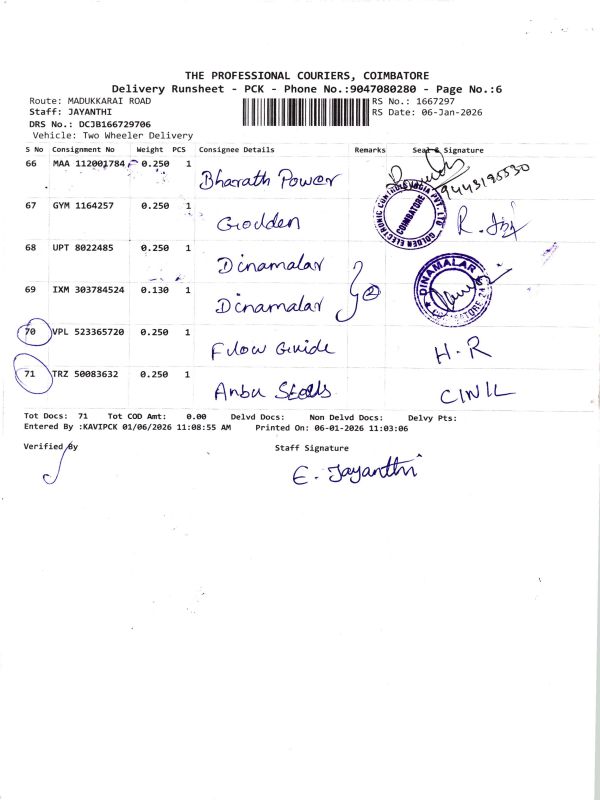 THE PROFESSIONAL COURIERS, COIMBATORE
Delivery Runsheet - PCK - Phone No.:9047080280 - Page No.:6
Route: MADUKKARAI ROAD RS No.: 1667297
Staff: JAYANTHI RS Date: 06-Jan-2026
DRS No.: DCJB166729706
Vehicle: Two Wheeler Delivery
S No Consignment No Weight PCS Consignee Details Remarks Seal & Signature
66 MAA 112001784 0.250 1 Bharath Power 9443185530
67 GYM 1164257 0.250 1 Golden
GOLDEN ELECTRONIC CONTROLS INDIA PVT. LTD
COIMBATORE
68 UPT 8022485 0.250 1 Dinamalar
69 IXM 303784524 0.130 1 Dinamalar 2
DINAMALAR
COIMBATORE
70 VPL 523365720 0.250 1 Flow Guide H.R
71 TRZ 50083632 0.250 1 Anbu Steels
Tot Docs: 71 Tot COD Amt: 0.00 Delvd Docs: Non Delvd Docs: Delvy Pts:
Entered By :KAVIPCK 01/06/2026 11:08:55 AM Printed On: 06-01-2026 11:03:06
Verified By Staff Signature
E. Jayanthi